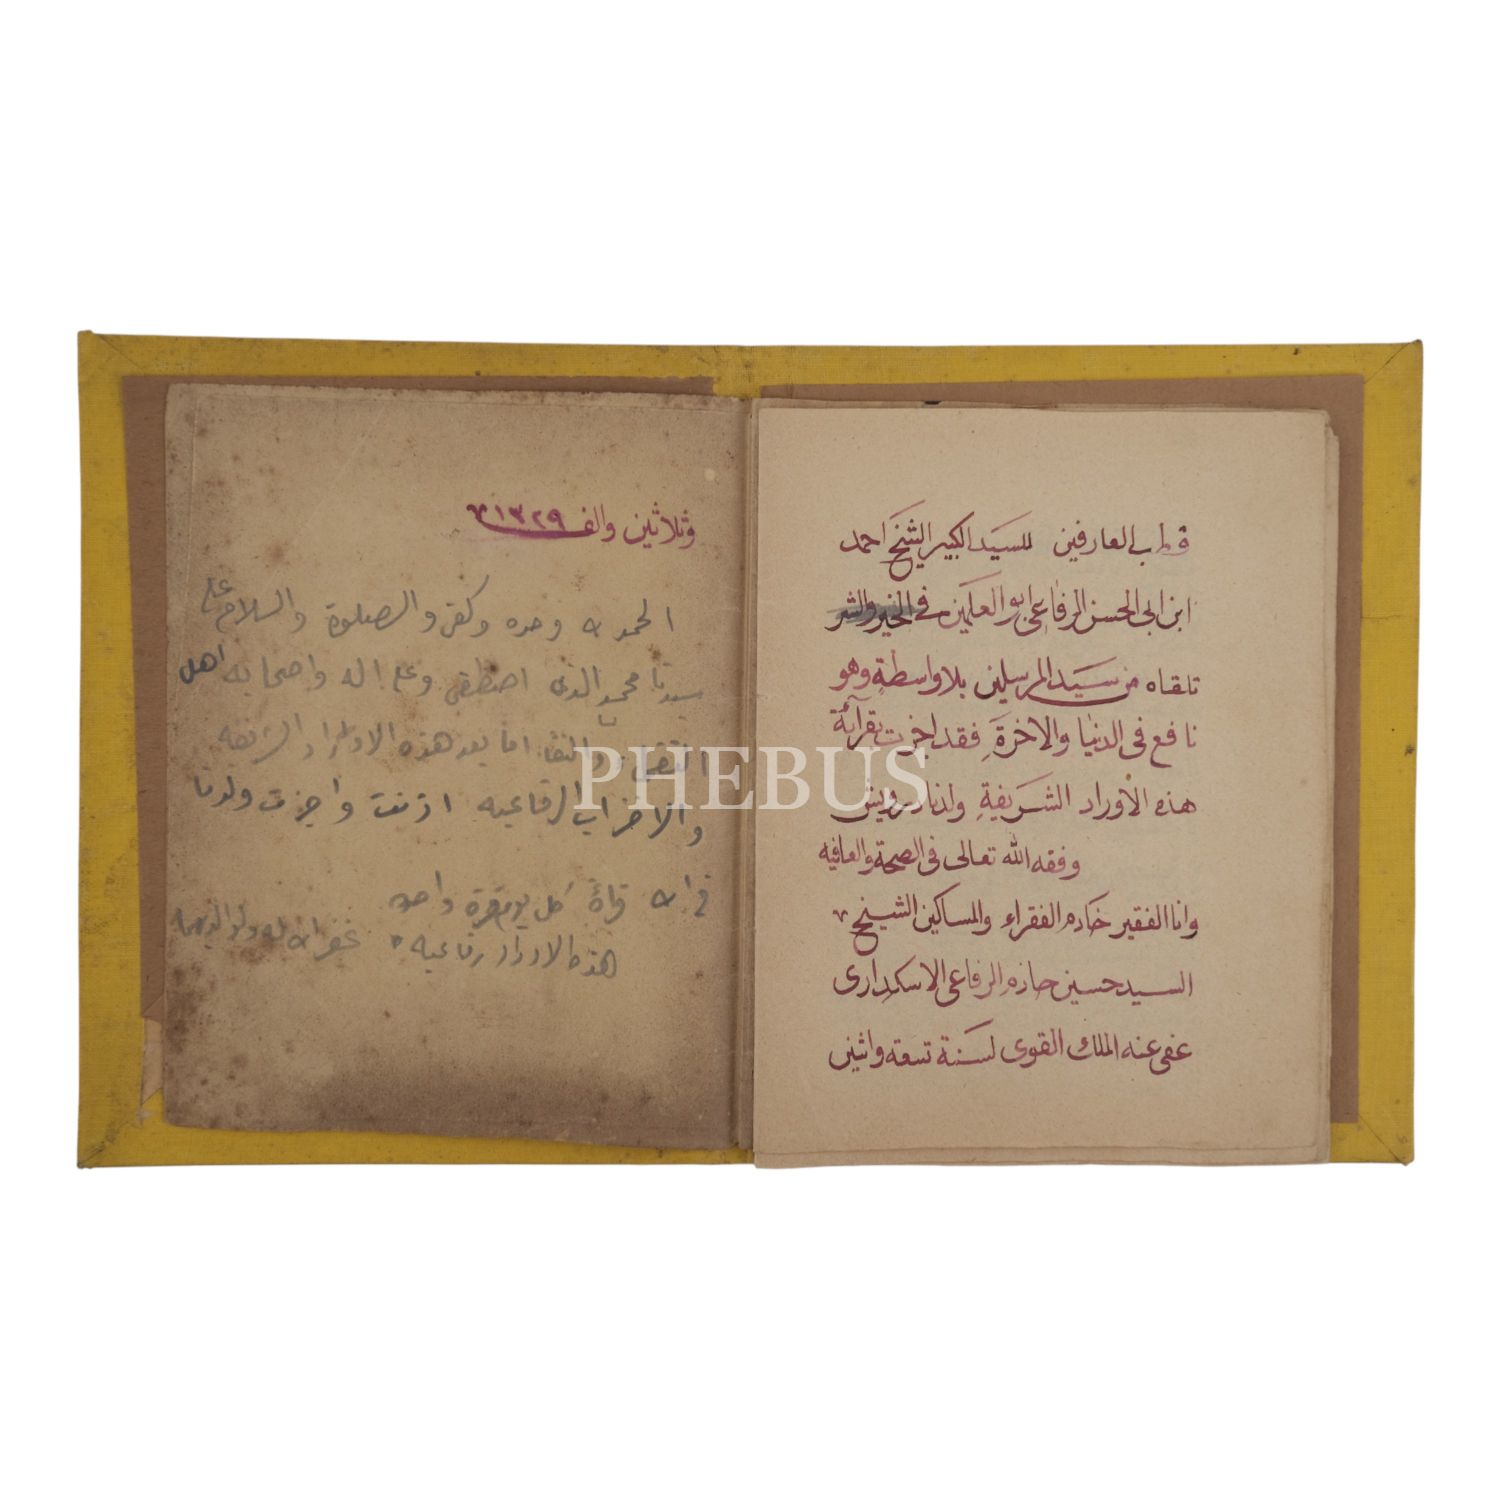 قطاب العارفين للسيد الكبير الشيخ احمد
ابن ابى الحسن الرفاعى ابو العلمين فى الخير والشر
تلقاه من سيد المرسلين بلا واسطة وهو
نافع فى الدنيا والاخرة فقد اجزت بقرائة
هذه الاوراد الشريفة ولدنا درويش
وفقه الله تعالى فى الصحة والعافيه
وانا الفقير خادم الفقراء والمساكين الشيخ
السيد حسين حازم الرفاعى الاسكدارى
عفى عنه الملك القوى لسنة تسعة واثنين
وثلاثين والف ١٣٢٩
الحمد لله وحده وكفى والصلوة والسلام على
سيدنا محمد الذى اصطفى وعلى اله واصحابه اهل
اما بعد هذه الاوراد الشريفه
والاحزاب الرفاعيه اذنت واجزت ولدنا
قرأة كل يوم مرة واحده
هذه الاوراد رفاعيه غفر الله له ولوالديهما
PHEBUS